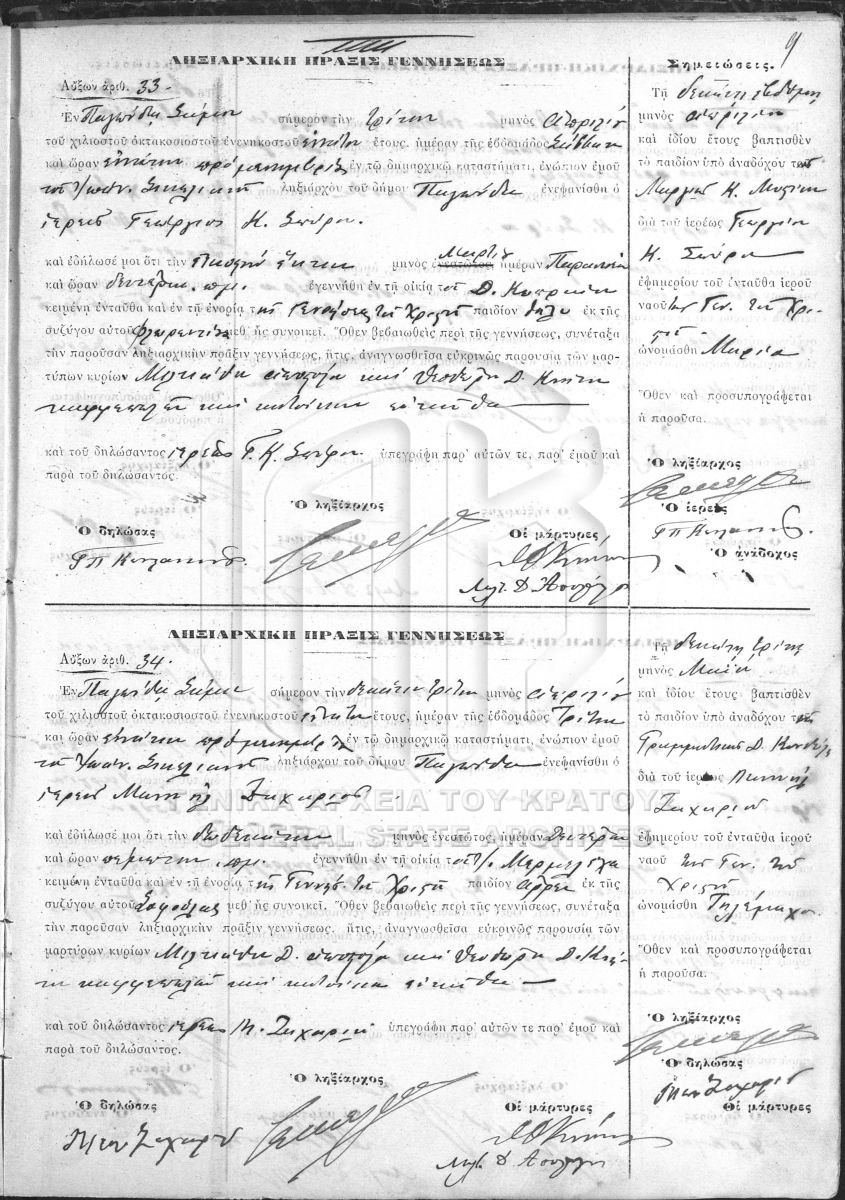 9
ΛΗΞΙΑΡΧΙΚΗ ΠΡΑΞΙΣ ΓΕΝΝΗΣΕΩΣ
Αὔξων ἀριθ. 33.
Ἐν Παγώνδᾳ Σάμου σήμερον τὴν τρίτην μηνὸς Ἀπριλίου
τοῦ χιλιοστοῦ ὀκτακοσιοστοῦ ἐνενηκοστοῦ ἐνάτου ἔτους, ἡμέραν τῆς ἑβδομάδος Σάββατον
καὶ ὥραν ἐνάτην πρὸ μεσημβρίας ἐν τῷ δημαρχικῷ καταστήματι, ἐνώπιον ἐμοῦ
τοῦ Ἰωάν. ληξιάρχου τοῦ δήμου Παγώνδα ἐνεφανίσθη ὁ
ἱερεὺς Γεώργιος Κ. Σπύρου.
καὶ ἐδήλωσέ μοι ὅτι τὴν εἰκοστὴν ἕκτην μηνὸς ἐνεστῶτος Μαρτίου ἡμέραν Παρασκευὴν
καὶ ὥραν δευτέραν π.μ. ἐγεννήθη ἐν τῇ οἰκίᾳ τοῦ Δ.
κειμένῃ ἐνταῦθα καὶ ἐν τῇ ἐνορίᾳ τῆς Γεννήσεως τοῦ Χριστοῦ παιδίον θῆλυ ἐκ τῆς
συζύγου αὐτοῦ Φλωρεντίας μεθ' ἧς συνοικεῖ. Ὅθεν βεβαιωθεὶς περὶ τῆς γεννήσεως, συνέταξα
τὴν παροῦσαν ληξιαρχικὴν πρᾶξιν γεννήσεως, ἥτις, ἀναγνωσθεῖσα εὐκρινῶς παρουσίᾳ τῶν μαρ-
τύρων κυρίων Μιλτιάδη καὶ Θεοδώρου Δ.
καὶ κατοίκων ἐνταῦθα
καὶ τοῦ δηλώσαντος ἱερέως Γ. Κ. Σπύρου ὑπεγράφη παρ' αὐτῶν τε, παρ' ἐμοῦ καὶ
παρὰ τοῦ δηλώσαντος.
Ὁ ληξίαρχος
Ὁ δηλώσας
Οἱ μάρτυρες
Σημειώσεις.
Τῇ δεκάτῃ ἑβδόμῃ
μηνὸς Ἀπριλίου
καὶ ἰδίου ἔτους βαπτισθὲν
τὸ παιδίον ὑπὸ ἀναδόχου τοῦ
Κ.
διὰ τοῦ ἱερέως Γεωργίου
Κ. Σπύρου
ἐφημερίου τοῦ ἐνταῦθα ἱεροῦ
ναοῦ τῆς Γεν. τοῦ Χρι-
στοῦ
ὠνομάσθη Μαρία
Ὅθεν καὶ προσυπογράφεται
ἡ παροῦσα.
Ὁ ληξίαρχος
Ὁ ἱερεὺς
Ὁ ἀνάδοχος
ΛΗΞΙΑΡΧΙΚΗ ΠΡΑΞΙΣ ΓΕΝΝΗΣΕΩΣ
Αὔξων ἀριθ. 34.
Ἐν Παγώνδᾳ Σάμου σήμερον τὴν δεκάτην τρίτην μηνὸς Ἀπριλίου
τοῦ χιλιοστοῦ ὀκτακοσιοστοῦ ἐνενηκοστοῦ ἐνάτου ἔτους, ἡμέραν τῆς ἑβδομάδος Τρίτην
καὶ ὥραν ἐνάτην πρὸ μεσημβρίας ἐν τῷ δημαρχικῷ καταστήματι, ἐνώπιον ἐμοῦ
τοῦ Ἰωάν. ληξιάρχου τοῦ δήμου Παγώνδα ἐνεφανίσθη ὁ
ἱερεὺς Μανουὴλ Ζαχαρίου
καὶ ἐδήλωσέ μοι ὅτι τὴν δωδεκάτην μηνὸς ἐνεστῶτος, ἡμέραν Δευτέραν
καὶ ὥραν πέμπτην π.μ. ἐγεννήθη ἐν τῇ οἰκίᾳ τοῦ
κειμένῃ ἐνταῦθα καὶ ἐν τῇ ἐνορίᾳ τῆς Γεννήσ. τοῦ Χριστοῦ παιδίον ἄρρεν ἐκ τῆς
συζύγου αὐτοῦ Σοφούλας μεθ' ἧς συνοικεῖ. Ὅθεν βεβαιωθεὶς περὶ τῆς γεννήσεως, συνέταξα
τὴν παροῦσαν ληξιαρχικὴν πρᾶξιν γεννήσεως. ἥτις, ἀναγνωσθεῖσα εὐκρινῶς παρουσίᾳ τῶν
μαρτύρων κυρίων Μιλτιάδη Δ. καὶ Θεοδώρου Δ.
καὶ κατοίκων ἐνταῦθα
καὶ τοῦ δηλώσαντος ἱερέως Μ. Ζαχαρίου ὑπεγράφη παρ' αὐτῶν τε παρ' ἐμοῦ καὶ
παρὰ τοῦ δηλώσαντος.
Ὁ ληξίαρχος
Ὁ δηλώσας
Οἱ μάρτυρες
Τῇ δεκάτῃ τρίτῃ
μηνὸς Μαΐου
καὶ ἰδίου ἔτους βαπτισθὲν
τὸ παιδίον ὑπὸ ἀναδόχου
Δ.
διὰ τοῦ ἱερέως Μανουὴλ
Ζαχαρίου
ἐφημερίου τοῦ ἐνταῦθα ἱεροῦ
ναοῦ τῆς Γεν. τοῦ
Χριστοῦ
ὠνομάσθη Τηλέμαχος.
Ὅθεν καὶ προσυπογράφεται
ἡ παροῦσα.
Ὁ ληξίαρχος
Ὁ δηλώσας
Οἱ μάρτυρες
ΓΕΝΙΚΑ ΑΡΧΕΙΑ ΤΟΥ ΚΡΑΤΟΥΣ
GENERAL STATE ARCHIVES